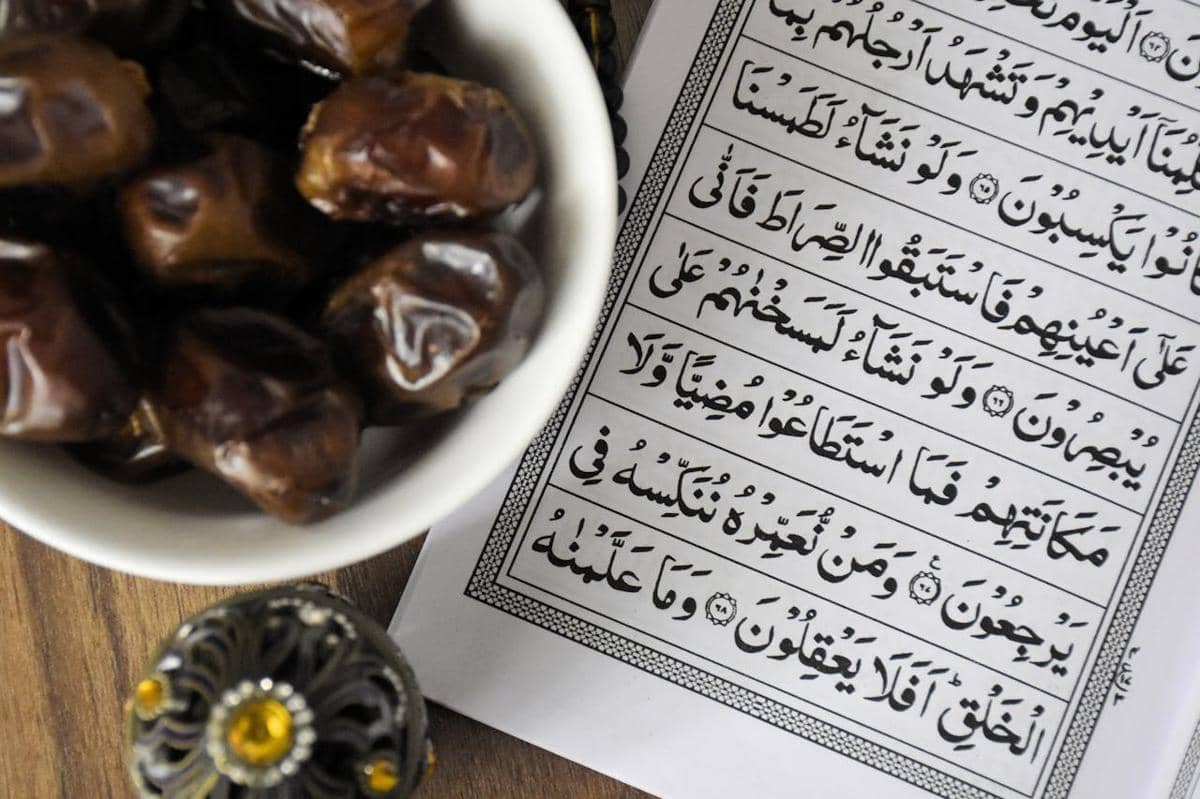 اَلْيَوْمَ
اَيْدِيْهِمْ وَ تَشْهَدُ اَرْجُلُهُمْ بِمَا
كَانُوْا يَكْسِبُوْنَ ﴿٦٥﴾ وَلَوْ نَشَآءُ لَطَمَسْنَا
عَلٰۤى اَعْيُنِهِمْ فَاسْتَبَقُوا الصِّرَاطَ فَاَنّٰى
يُبْصِرُوْنَ ﴿٦٦﴾ وَلَوْ نَشَآءُ لَمَسَخْنٰهُمْ عَلٰى
مَكَانَتِهِمْ فَمَا اسْتَطَاعُوْا مُضِيًّا وَّلَا
يَرْجِعُوْنَ ﴿٦٧﴾ ع وَمَنْ نُّعَمِّرْهُ نُنَكِّسْهُ فِى
الْخَلْقِ ؕ اَفَلَا يَعْقِلُوْنَ ﴿٦٨﴾ وَمَا عَلَّمْنٰهُ